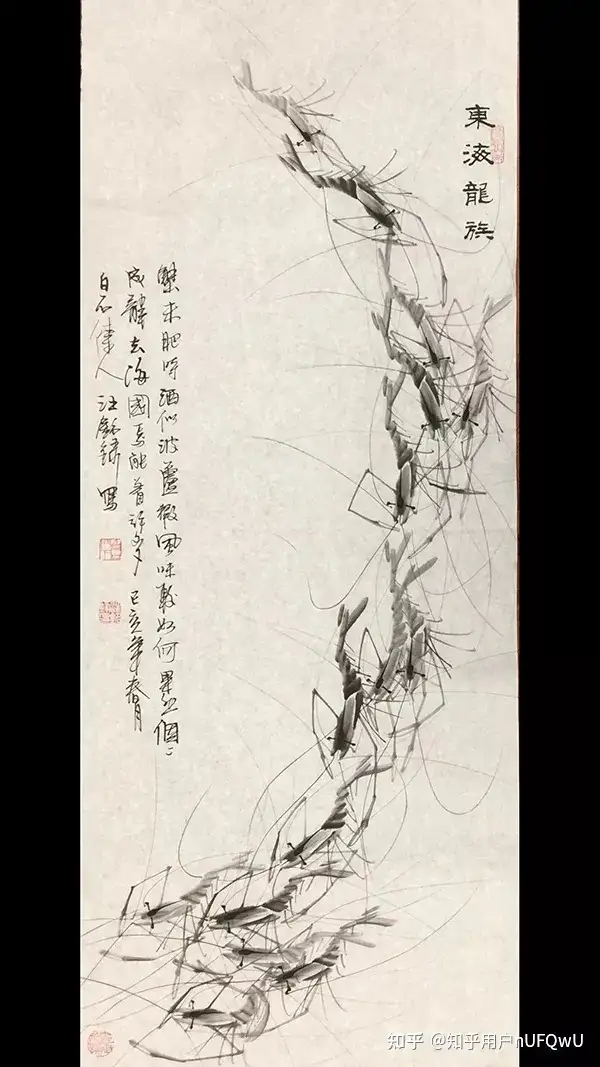 東海龍族
蟹未肥時酒似波蘆風味較如何個々
成龍去海國焉能着許多己亥年春月
白石傳人汪寫
知乎 @知乎用户nUFQwU